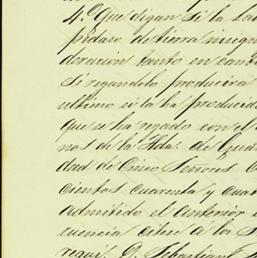 4.º Que digan si la
pedazo de tierra insign
doracion tanto en can
Si regandolo producira
ultimo si la ha producid
que se ha regado con el
nos de la Hda. de Guad
dad de Cinco Señores
cientos cuarenta y cuat
admitido el anterior
cuencia citese á los S
requi, D. Sebastian